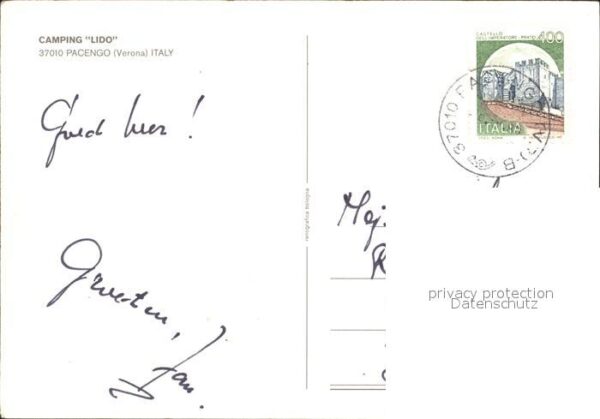 CAMPING "LIDO"
37010 PACENGO (Verona) ITALY
CASTELLO
DELL'IMPERATORE - PRATO
400
ITALIA
37010 PACENGO (VR) - B
Goed hier!
Groeten,
Jan.
Mej.
privacy protection
Datenschutz